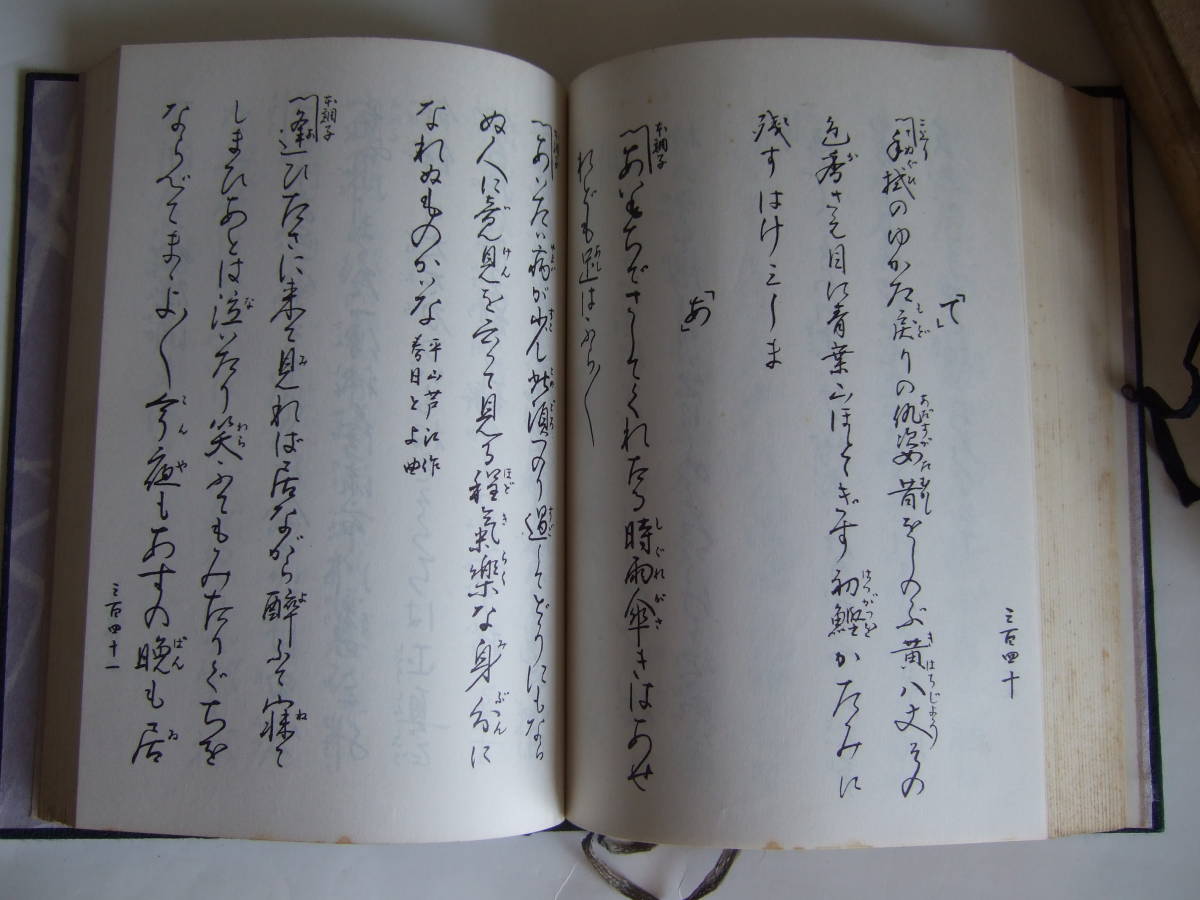 三百四十
「て」
三下り
〽手拭のゆかた戻りの仇姿昔をしのぶ黄八丈その
色香さえ目に青葉山ほとゝぎす初鰹かたみに
残すはけ
「あ」
本調子
〽あいもちでさしてくれたる時雨傘きはあせ
れども足はふら〱
本調子
〽あいたい病が 此頃つのり過してどうにもなら
ぬ人に意見を云って見る程氣樂な身分に
なれぬものかいな 平山芦江作 春日とよ曲
本調子
〽逢ひたさに来て見れば居ながら醉ふて寐て
しまひあとは泣いたり笑ふてもみたりぐちを
ならべてまゝよ〱今夜もあすの晩も居
三百四十一